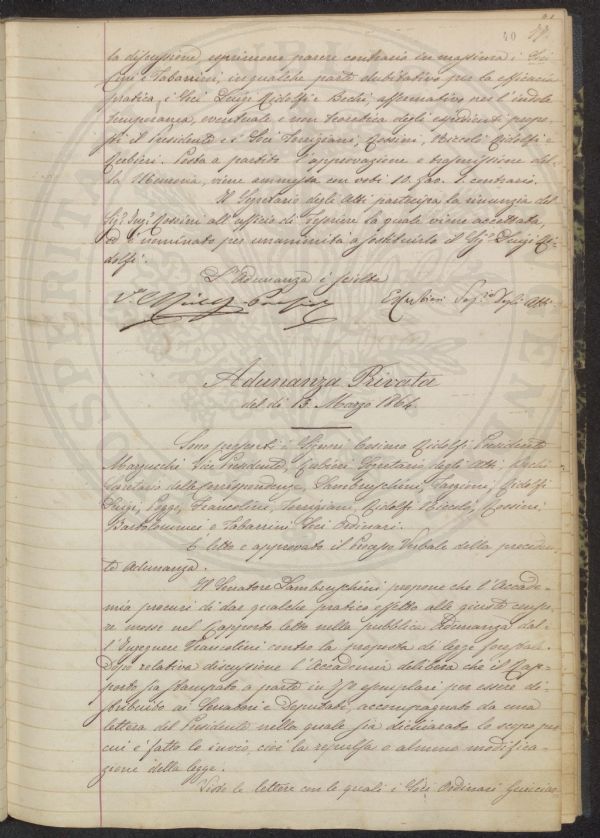 40
la discussione esprimono parere contrario in massima i Soci
Cini e Tabarrini, in qualche parte dubitativo per la efficacia
pratica, i Soci Luigi Ridolfi e Bechi, affermativo per l'indole
temporanea, eventuale e non teoretica degli espedienti propo-
sti il Presidente e i Soci Torrigiani, Rossini, Niccolò Ridolfi e
Rubieri. Posta a partito l'approvazione e trasmissione del-
la Memoria, viene ammessa con voti 10 fav. 2 contrario.
Il Segretario degli Atti partecipa la rinunzia del
Sig.r Ing.r Rossini all'ufficio di la quale viene accettata,
ed è nominato per unanimità a sostituirlo il Sig. Luigi Ri-
dolfi.
L'Adunanza è sciolta
E. Rubieri Seg.rio degli Atti
Adunanza Privata
del dì 13 Marzo 1864.
Sono presenti i Signori Cosimo Ridolfi Presidente
Mazzucchi Vice Presidente, Rubieri Segretario degli Atti, Bechi
Segretario delle Corrispondenze, Lambruschini, Targioni, Ridolfi
Luigi, Poggi, Francolini, Torrigiani, Ridolfi Niccolò, Rossini,
Bartolommei e Tabarrini Soci Ordinari.
È letto e approvato il Processo Verbale della preceden-
te Adunanza.
Il Senatore Lambruschini propone che l'Accade-
mia procuri di dar qualche pratico effetto alle giuste censu-
re mosse nel Rapporto letto nella pubblica Adunanza dal-
l'Ingegnere Francolini contro la proposta di legge forestale.
Dopo relativa discussione l'Accademia delibera che il Rap-
porto sia stampato a parte in 750 esemplari per essere di-
stribuito ai Senatori e Deputati, accompagnato da una
lettera del Presidente nella quale sia dichiarato lo scopo per
cui è fatto lo invio, cioè la repulsa o almeno modifica-
zione della legge.
Viste le lettere con le quali i Soci Ordinari Guicciar-